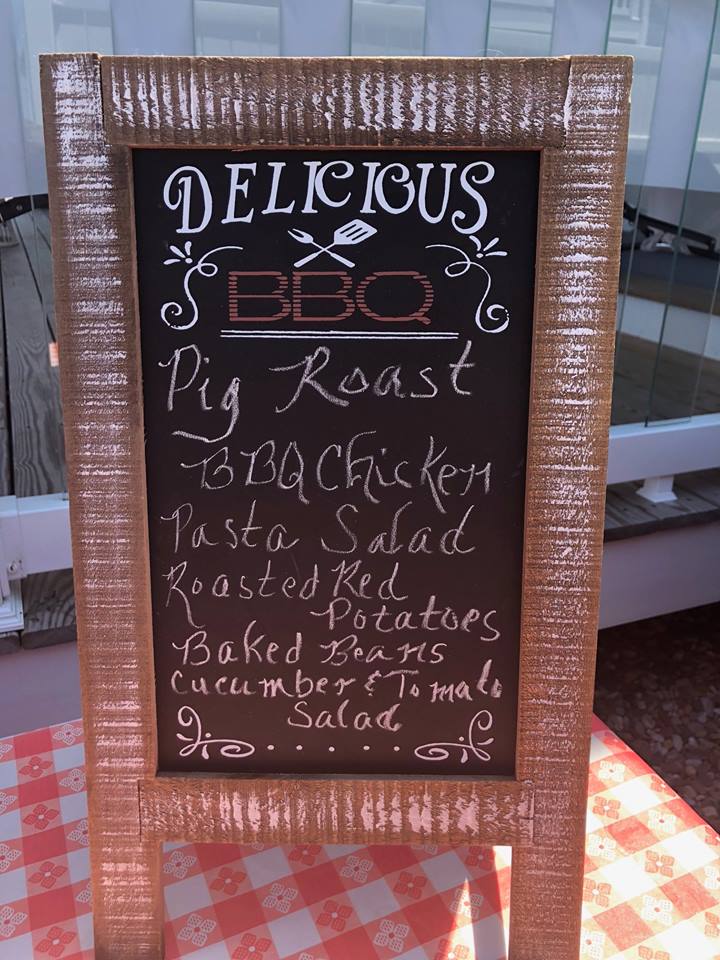 DELICIOUS
BBQ
Pig Roast
BBQ Chicken
Pasta Salad
Roasted Red
Potatoes
Baked Beans
Cucumber & Tomato
Salad